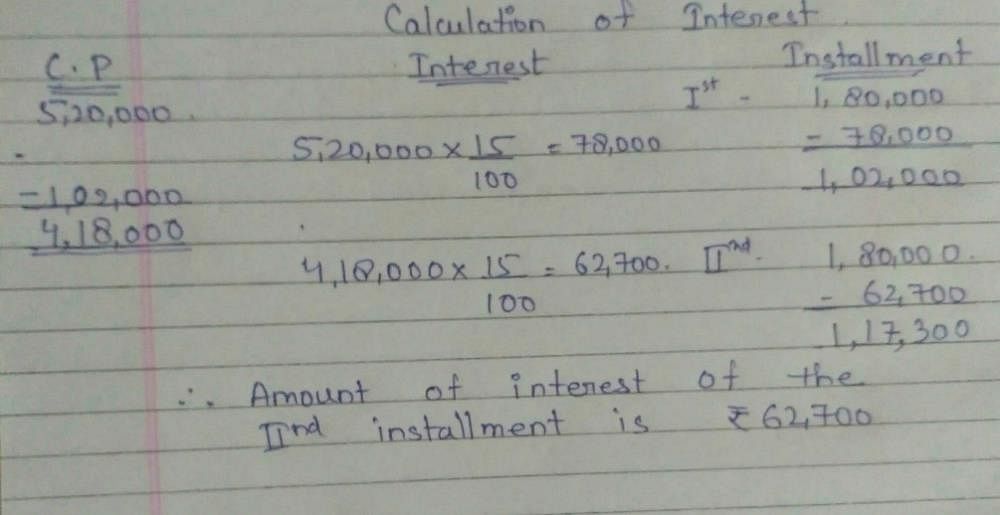 Calculation of Interest
C.P Interest Installment
5,20,000. Ist - 1,80,000
5,20,000 × 15/100 = 78,000 - 78,000
1,02,000
- 1,02,000
4,18,000
4,18,000 × 15/100 = 62,700. IInd. 1,80,000.
- 62,700
1,17,300
∴ Amount of interest of the
IInd installment is ₹ 62,700